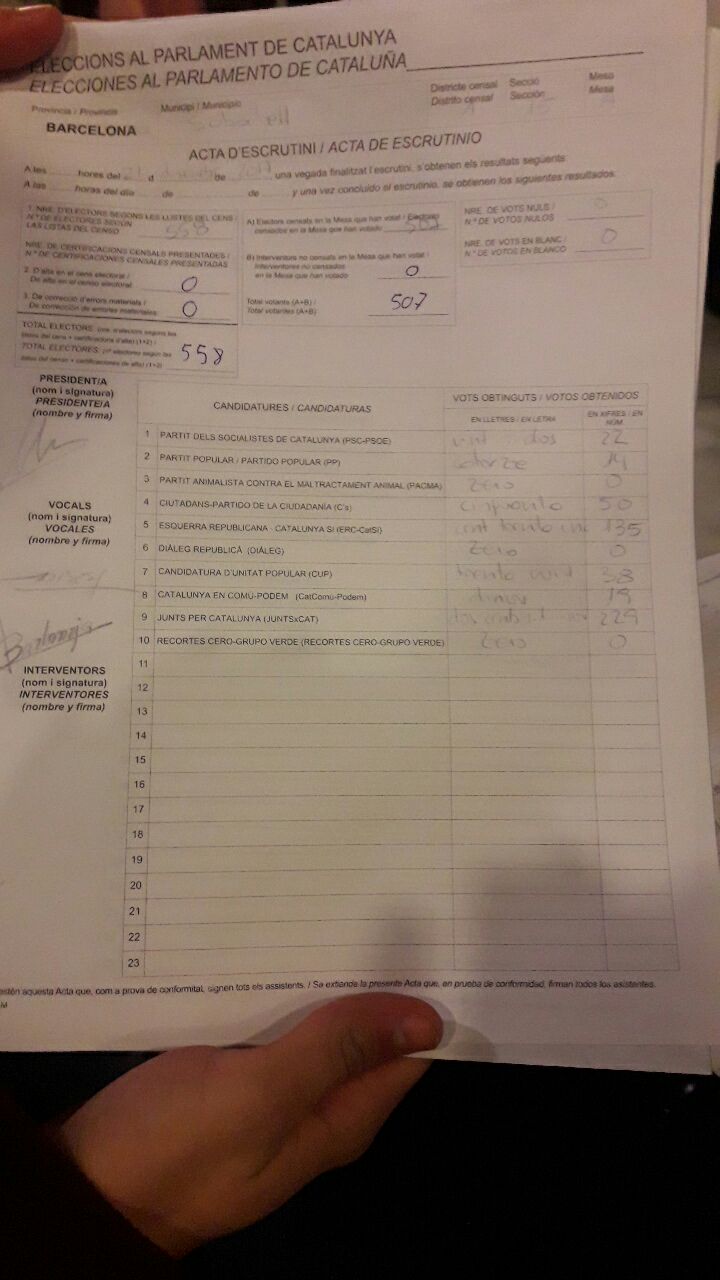 ELECCIONS AL PARLAMENT DE CATALUNYA
ELECCIONES AL PARLAMENTO DE CATALUÑA
Província / Provincia
Municipi / Municipio
Districte censal
Distrito censal
Secció
Sección
Mesa
Mesa
BARCELONA
Sabadell
ACTA D'ESCRUTINI / ACTA DE ESCRUTINIO
A les hores del 21 d de una vegada finalitzat l'escrutini, s'obtenen els resultats següents:
A las horas del día de de y una vez concluido el escrutinio, se obtienen los siguientes resultados:
1. NRE. D'ELECTORS SEGONS LES LLISTES DEL CENS /
Nº DE ELECTORES SEGÚN
LAS LISTAS DEL CENSO
558
NRE. DE CERTIFICACIONS CENSALS PRESENTADES /
Nº DE CERTIFICACIONES CENSALES PRESENTADAS
2. D'alta en el cens electoral /
De alta en el censo electoral
0
3. De correcció d'errors materials /
De corrección de errores materiales
0
TOTAL ELECTORS: (nre. d'electors segons les
llistes del cens + certificacions d'alta) (1+2) /
TOTAL ELECTORES: (nº electores según las
listas del censo + certificaciones de alta) (1+2)
558
A) Electors censats en la Mesa que han votat / Electores
censados en la Mesa que han votado
507
B) Interventors no censats en la Mesa que han votat /
Interventores no censados
en la Mesa que han votado
0
Total votants (A+B) /
Total votantes (A+B)
507
NRE. DE VOTS NULS /
Nº DE VOTOS NULOS
0
NRE. DE VOTS EN BLANC /
Nº DE VOTOS EN BLANCO
0
PRESIDENT/A
(nom i signatura)
PRESIDENTE/A
(nombre y firma)
VOCALS
(nom i signatura)
VOCALES
(nombre y firma)
INTERVENTORS
(nom i signatura)
INTERVENTORES
(nombre y firma)
CANDIDATURES / CANDIDATURAS
VOTS OBTINGUTS / VOTOS OBTENIDOS
EN LLETRES / EN LETRA
EN XIFRES / EN NÚM.
1 PARTIT DELS SOCIALISTES DE CATALUNYA (PSC-PSOE) vint dos 22
2 PARTIT POPULAR / PARTIDO POPULAR (PP) catorze 14
3 PARTIT ANIMALISTA CONTRA EL MALTRACTAMENT ANIMAL (PACMA) zero 0
4 CIUTADANS-PARTIDO DE LA CIUDADANÍA (C's) cinquanta 50
5 ESQUERRA REPUBLICANA - CATALUNYA SÍ (ERC-CatSí) cent trenta cinc 135
6 DIÀLEG REPUBLICÀ (DIÀLEG) zero 0
7 CANDIDATURA D'UNITAT POPULAR (CUP) trenta vuit 38
8 CATALUNYA EN COMÚ-PODEM (CatComú-Podem) 19
9 JUNTS PER CATALUNYA (JUNTSxCAT) 229
10 RECORTES CERO-GRUPO VERDE (RECORTES CERO-GRUPO VERDE) zero 0
11
12
13
14
15
16
17
18
19
20
21
22
23
estén aquesta Acta que, com a prova de conformitat, signen tots els assistents. / Se extiende la presente Acta que, en prueba de conformidad, firman todos los asistentes.